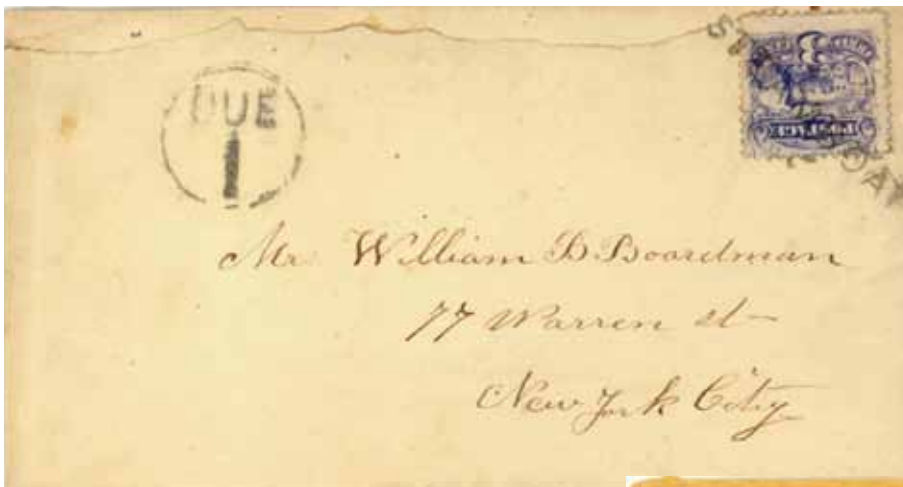 DUE
1
3
POSTAGE
Mr. William B Boardman
77 Warren st
New York City